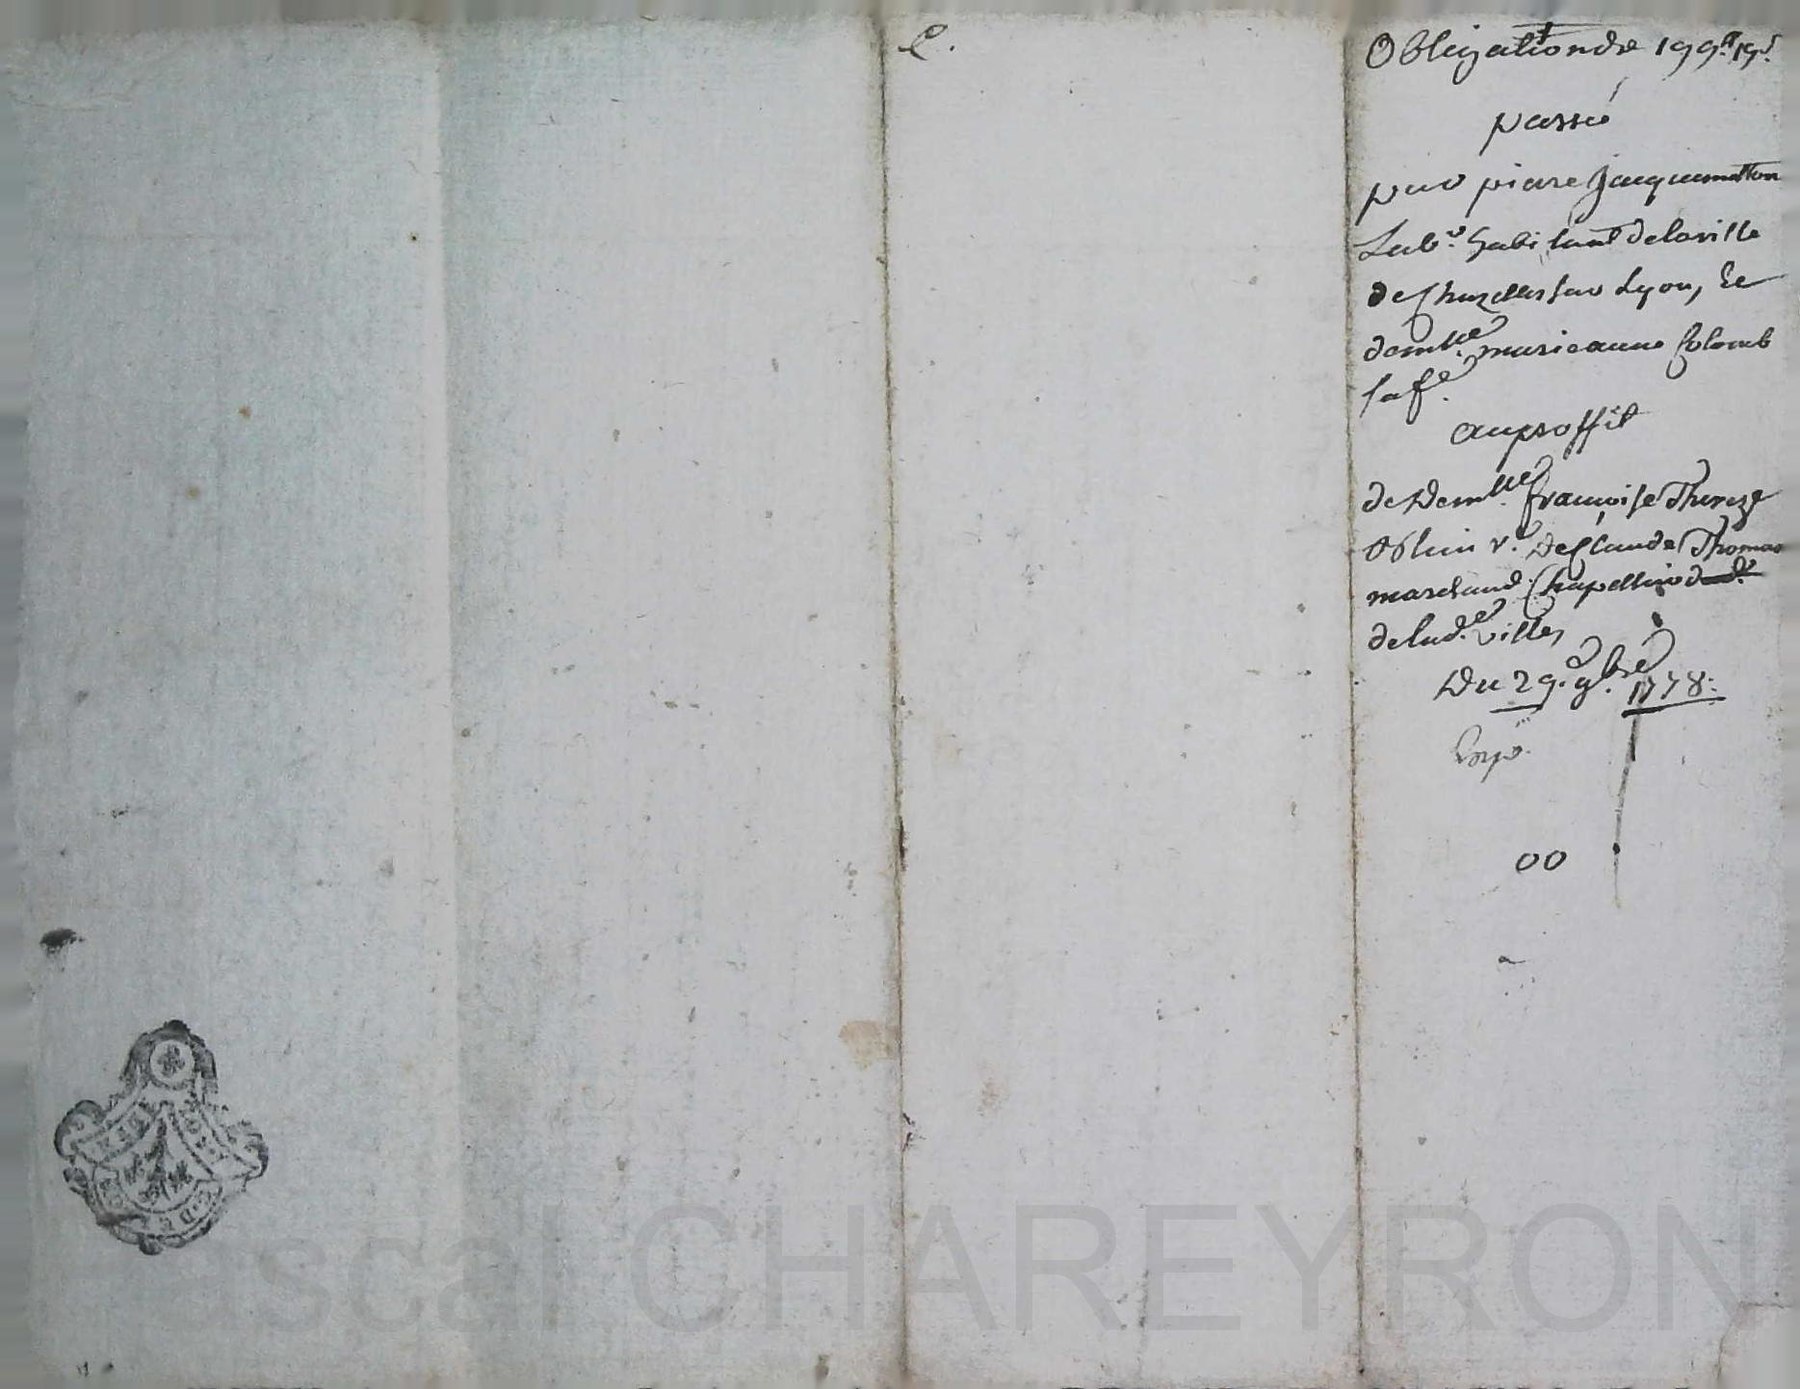 C.
Obligation de 199.tt 19.s
passé
par piare Jacquemetton
Lab.r habitant de la ville
de Chazelles sur Lyon, et
dem.lle marie anne Colomb
sa f.e
au proffit
de Dem.lle francoise Thereze
v.e de Claude Thomas
marchand Chapellier
de lad.e ville,
Du 29. 9.bre 1778.
Exp.
00
Pascal CHAREYRON